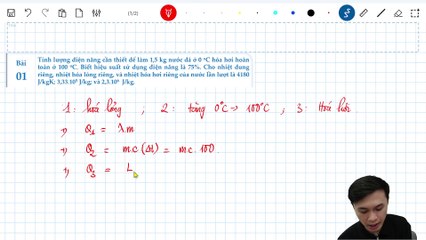 (1/2)
Bài
01
Tính lượng điện năng cần thiết để làm 1,5 kg nước đá ở 0 °C hóa hơi hoàn
toàn ở 100 °C. Biết hiệu suất sử dụng điện năng là 75%. Cho nhiệt dung
riêng, nhiệt hóa lỏng riêng, và nhiệt hóa hơi riêng của nước lần lượt là 4180
J/kgK; 3,33.10⁵ J/kg; và 2,3.10⁶ J/kg.
1: hoá lỏng ; 2: tăng 0°C → 100°C ; 3: Hoá hơi
Q₁ = λ.m
Q₂ = m.c(Δt) = mc.100.
Q₃ = L